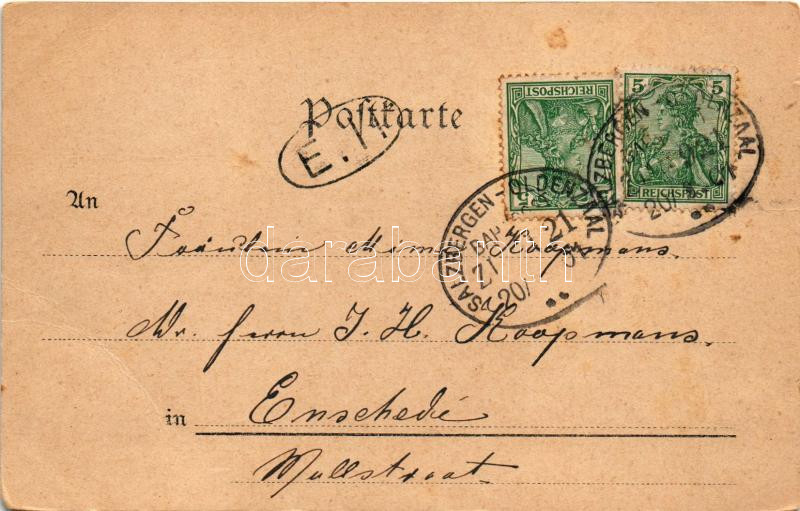 Postkarte
E.II.
REICHSPOST
5
5
REICHSPOST
SALZBERGEN - OLDENZAAL
BAHNPOST
ZUG 21
20/
SALZBERGEN - OLDENZAAL
20/
An
Fräulein Mimi Koopmans,
Adr. Herrn J. H. Koopmans.
in Enschedé
Wallstraat.
darabanth